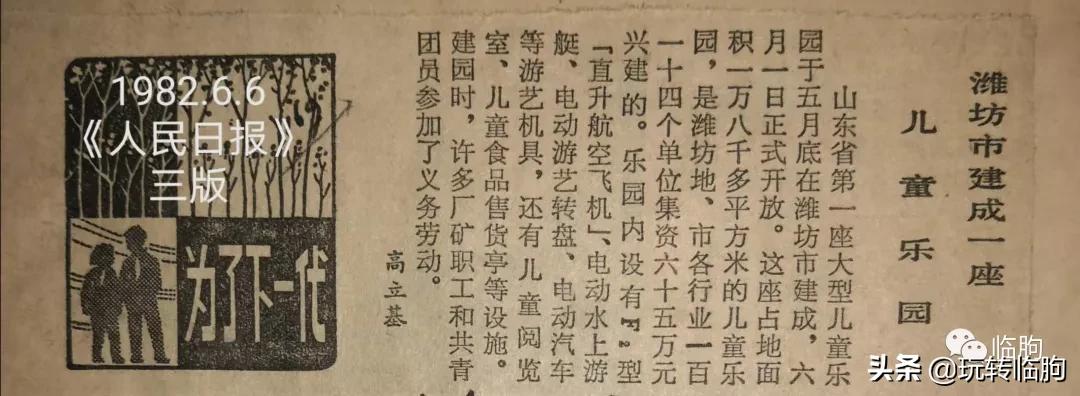 潍坊市建成一座
儿童乐园
山东省第一座大型儿童乐
园于五月底在潍坊市建成，六
月一日正式开放。这座占地面
积一万八千多平方米的儿童乐
园，是潍坊地、市各行业一百
一十四个单位集资六十五万元
兴建的。乐园内设有型
「直升航空飞机」、电动水上游
艇、电动游艺转盘、电动汽车
等游艺机具，还有儿童阅览
室、儿童食品售货亭等设施。
建园时，许多厂矿职工和共青
团员参加了义务劳动。
高立基
1982.6.6
《人民日报》
三版
为了下一代
临朐
头条 @玩转临朐